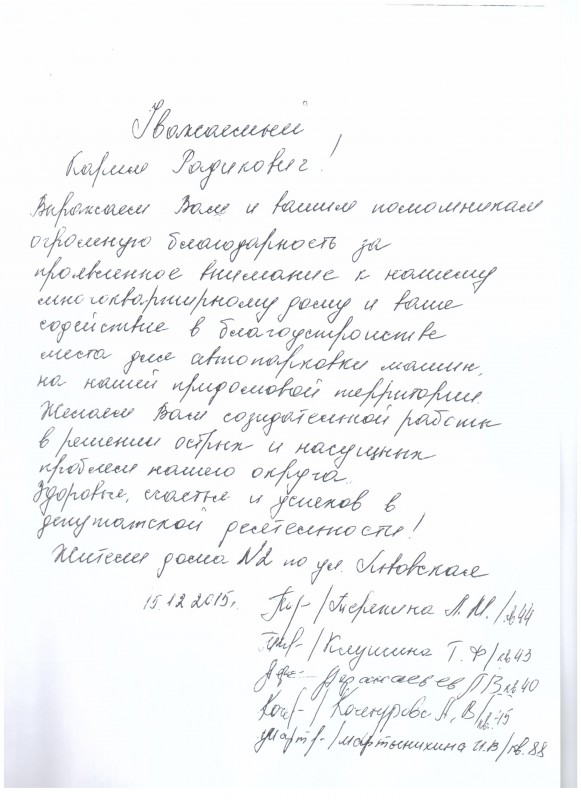 Уважаемый
Карим Радикович!
Выражаем Вам и вашим помощникам
огромную благодарность за
проявленное внимание к нашему
многоквартирному дому и ваше
содействие в благоустройстве
места для автопарковки машин,
на нашей придомовой территории.
Желаем Вам созидательной работы
в решении острых и насущных
проблем нашего округа.
Здоровья, счастья и успехов в
депутатской деятельности!
Жители дома №2 по ул. Львовская
15.12.2015г. Л.М./кв44
/Клушина Т.Ф/кв43
кв40
А,В/кв.45
/Мартынихина И.В/кв.88